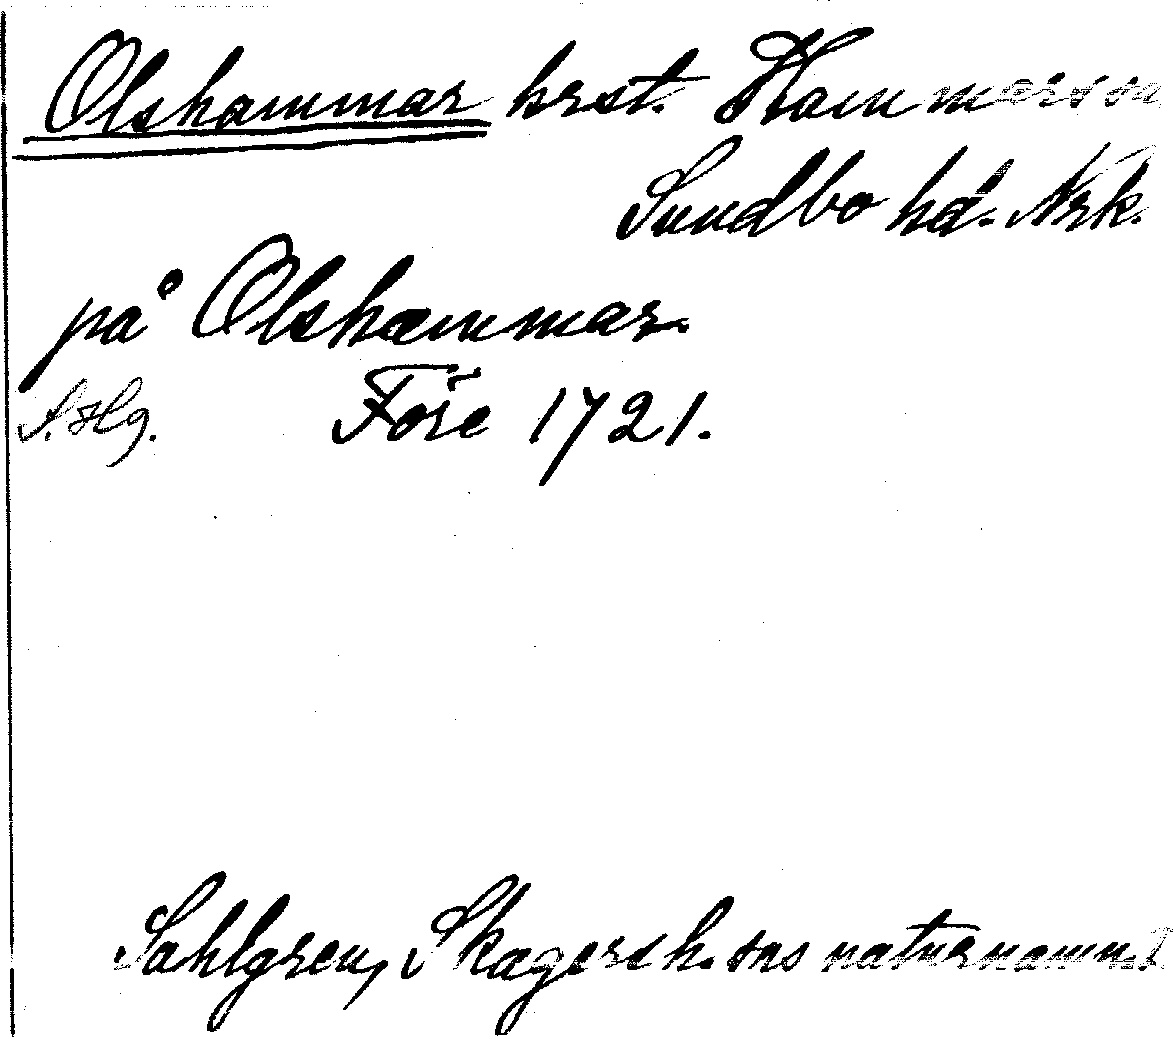 Olshammar hrst. Hammars sn
Sundbo hd. Nrk.
på Olshammar.
S. Hlg. Före 1721.
Sahlgren, Skagersh. sns naturnamn.